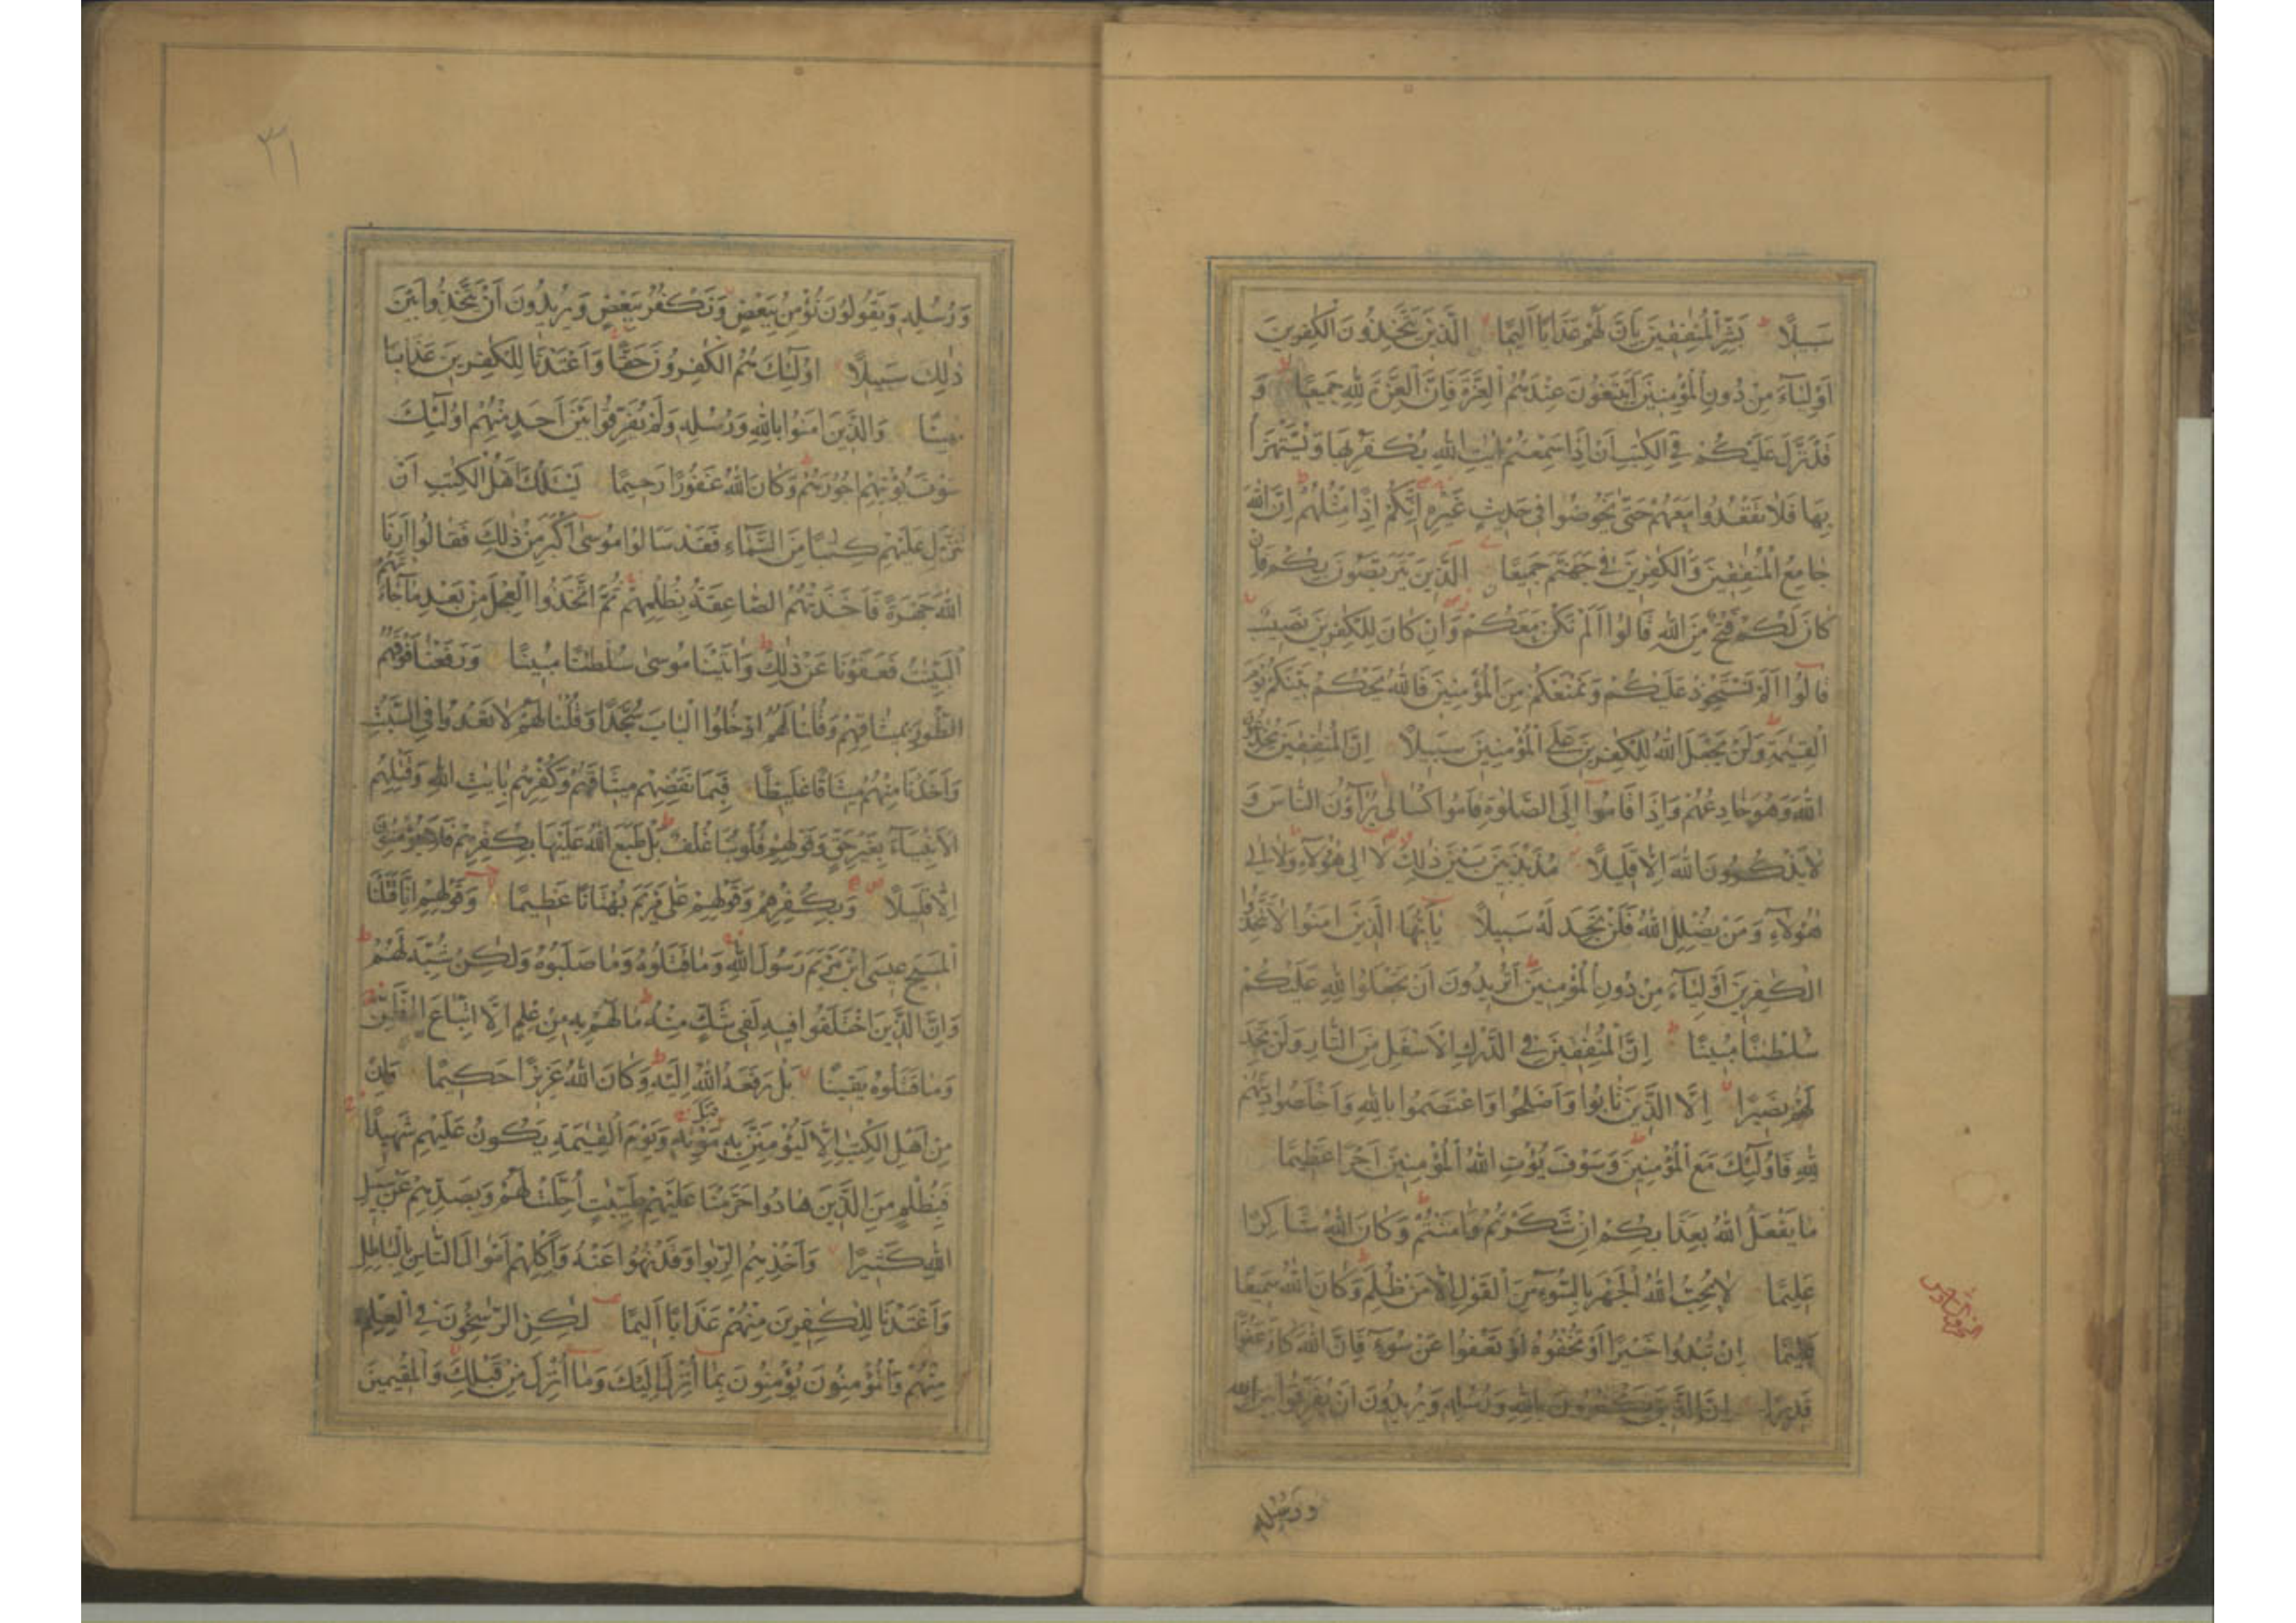 سَبِيلًا بَشِّرِ الْمُنٰفِقِينَ بِاَنَّ لَهُمْ عَذَابًا اَلِيمًا الَّذِينَ يَتَّخِذُونَ الْكٰفِرِينَ
اَوْلِيَآءَ مِنْ دُونِ الْمُؤْمِنِينَ اَيَبْتَغُونَ عِنْدَهُمُ الْعِزَّةَ فَاِنَّ الْعِزَّةَ لِلّٰهِ جَمِيعًا وَ
قَدْ نَزَّلَ عَلَيْكُمْ فِي الْكِتٰبِ اَنْ اِذَا سَمِعْتُمْ اٰيٰتِ اللّٰهِ يُكْفَرُ بِهَا وَيُسْتَهْزَاُ
بِهَا فَلَا تَقْعُدُوا مَعَهُمْ حَتّٰى يَخُوضُوا فِي حَدِيثٍ غَيْرِهِ اِنَّكُمْ اِذًا مِثْلُهُمْ اِنَّ اللّٰهَ
جَامِعُ الْمُنٰفِقِينَ وَالْكٰفِرِينَ فِي جَهَنَّمَ جَمِيعًا الَّذِينَ يَتَرَبَّصُونَ بِكُمْ فَاِنْ
كَانَ لَكُمْ فَتْحٌ مِنَ اللّٰهِ قَالُوا اَلَمْ نَكُنْ مَعَكُمْ وَاِنْ كَانَ لِلْكٰفِرِينَ نَصِيبٌ
قَالُوا اَلَمْ نَسْتَحْوِذْ عَلَيْكُمْ وَنَمْنَعْكُمْ مِنَ الْمُؤْمِنِينَ فَاللّٰهُ يَحْكُمُ بَيْنَكُمْ يَوْمَ
الْقِيٰمَةِ وَلَنْ يَجْعَلَ اللّٰهُ لِلْكٰفِرِينَ عَلَى الْمُؤْمِنِينَ سَبِيلًا اِنَّ الْمُنٰفِقِينَ يُخٰدِعُونَ
اللّٰهَ وَهُوَ خَادِعُهُمْ وَاِذَا قَامُوا اِلَى الصَّلٰوةِ قَامُوا كُسَالٰى يُرَآؤُنَ النَّاسَ وَ
لَا يَذْكُرُونَ اللّٰهَ اِلَّا قَلِيلًا مُذَبْذَبِينَ بَيْنَ ذٰلِكَ لَا اِلٰى هٰؤُلَآءِ وَلَا اِلٰى
هٰؤُلَآءِ وَمَنْ يُضْلِلِ اللّٰهُ فَلَنْ تَجِدَ لَهُ سَبِيلًا يٰٓاَيُّهَا الَّذِينَ اٰمَنُوا لَا تَتَّخِذُوا
الْكٰفِرِينَ اَوْلِيَآءَ مِنْ دُونِ الْمُؤْمِنِينَ اَتُرِيدُونَ اَنْ تَجْعَلُوا لِلّٰهِ عَلَيْكُمْ
سُلْطٰنًا مُبِينًا اِنَّ الْمُنٰفِقِينَ فِي الدَّرْكِ الْاَسْفَلِ مِنَ النَّارِ وَلَنْ تَجِدَ
لَهُمْ نَصِيرًا اِلَّا الَّذِينَ تَابُوا وَاَصْلَحُوا وَاعْتَصَمُوا بِاللّٰهِ وَاَخْلَصُوا دِينَهُمْ
لِلّٰهِ فَاُولٰٓئِكَ مَعَ الْمُؤْمِنِينَ وَسَوْفَ يُؤْتِ اللّٰهُ الْمُؤْمِنِينَ اَجْرًا عَظِيمًا
مَا يَفْعَلُ اللّٰهُ بِعَذَابِكُمْ اِنْ شَكَرْتُمْ وَاٰمَنْتُمْ وَكَانَ اللّٰهُ شَاكِرًا
عَلِيمًا لَا يُحِبُّ اللّٰهُ الْجَهْرَ بِالسُّوٓءِ مِنَ الْقَوْلِ اِلَّا مَنْ ظُلِمَ وَكَانَ اللّٰهُ سَمِيعًا
عَلِيمًا اِنْ تُبْدُوا خَيْرًا اَوْ تُخْفُوهُ اَوْ تَعْفُوا عَنْ سُوٓءٍ فَاِنَّ اللّٰهَ كَانَ عَفُوًّا
قَدِيرًا اِنَّ الَّذِينَ يَكْفُرُونَ بِاللّٰهِ وَرُسُلِهِ وَيُرِيدُونَ اَنْ يُفَرِّقُوا بَيْنَ اللّٰهِ
وَرُسُلِهِ
٣١
وَرُسُلِهِ وَيَقُولُونَ نُؤْمِنُ بِبَعْضٍ وَنَكْفُرُ بِبَعْضٍ وَيُرِيدُونَ اَنْ يَتَّخِذُوا بَيْنَ
ذٰلِكَ سَبِيلًا اُولٰٓئِكَ هُمُ الْكٰفِرُونَ حَقًّا وَاَعْتَدْنَا لِلْكٰفِرِينَ عَذَابًا
مُهِينًا وَالَّذِينَ اٰمَنُوا بِاللّٰهِ وَرُسُلِهِ وَلَمْ يُفَرِّقُوا بَيْنَ اَحَدٍ مِنْهُمْ اُولٰٓئِكَ
سَوْفَ يُؤْتِيهِمْ اُجُورَهُمْ وَكَانَ اللّٰهُ غَفُورًا رَحِيمًا يَسْئَلُكَ اَهْلُ الْكِتٰبِ اَنْ
تُنَزِّلَ عَلَيْهِمْ كِتٰبًا مِنَ السَّمَآءِ فَقَدْ سَاَلُوا مُوسٰى اَكْبَرَ مِنْ ذٰلِكَ فَقَالُوا اَرِنَا
اللّٰهَ جَهْرَةً فَاَخَذَتْهُمُ الصَّاعِقَةُ بِظُلْمِهِمْ ثُمَّ اتَّخَذُوا الْعِجْلَ مِنْ بَعْدِ مَا جَآءَتْهُمُ
الْبَيِّنٰتُ فَعَفَوْنَا عَنْ ذٰلِكَ وَاٰتَيْنَا مُوسٰى سُلْطٰنًا مُبِينًا وَرَفَعْنَا فَوْقَهُمُ
الطُّورَ بِمِيثَاقِهِمْ وَقُلْنَا لَهُمُ ادْخُلُوا الْبَابَ سُجَّدًا وَقُلْنَا لَهُمْ لَا تَعْدُوا فِي السَّبْتِ
وَاَخَذْنَا مِنْهُمْ مِيثَاقًا غَلِيظًا فَبِمَا نَقْضِهِمْ مِيثَاقَهُمْ وَكُفْرِهِمْ بِاٰيٰتِ اللّٰهِ وَقَتْلِهِمُ
الْاَنْبِيَآءَ بِغَيْرِ حَقٍّ وَقَوْلِهِمْ قُلُوبُنَا غُلْفٌ بَلْ طَبَعَ اللّٰهُ عَلَيْهَا بِكُفْرِهِمْ فَلَا يُؤْمِنُونَ
اِلَّا قَلِيلًا وَبِكُفْرِهِمْ وَقَوْلِهِمْ عَلٰى مَرْيَمَ بُهْتَانًا عَظِيمًا وَقَوْلِهِمْ اِنَّا قَتَلْنَا
الْمَسِيحَ عِيسَى ابْنَ مَرْيَمَ رَسُولَ اللّٰهِ وَمَا قَتَلُوهُ وَمَا صَلَبُوهُ وَلٰكِنْ شُبِّهَ لَهُمْ
وَاِنَّ الَّذِينَ اخْتَلَفُوا فِيهِ لَفِي شَكٍّ مِنْهُ مَا لَهُمْ بِهِ مِنْ عِلْمٍ اِلَّا اتِّبَاعَ الظَّنِّ
وَمَا قَتَلُوهُ يَقِينًا بَلْ رَفَعَهُ اللّٰهُ اِلَيْهِ وَكَانَ اللّٰهُ عَزِيزًا حَكِيمًا وَاِنْ
مِنْ اَهْلِ الْكِتٰبِ اِلَّا لَيُؤْمِنَنَّ بِهِ قَبْلَ مَوْتِهِ وَيَوْمَ الْقِيٰمَةِ يَكُونُ عَلَيْهِمْ شَهِيدًا
فَبِظُلْمٍ مِنَ الَّذِينَ هَادُوا حَرَّمْنَا عَلَيْهِمْ طَيِّبٰتٍ اُحِلَّتْ لَهُمْ وَبِصَدِّهِمْ عَنْ سَبِيلِ
اللّٰهِ كَثِيرًا وَاَخْذِهِمُ الرِّبٰوا وَقَدْ نُهُوا عَنْهُ وَاَكْلِهِمْ اَمْوَالَ النَّاسِ بِالْبَاطِلِ
وَاَعْتَدْنَا لِلْكٰفِرِينَ مِنْهُمْ عَذَابًا اَلِيمًا لٰكِنِ الرّٰسِخُونَ فِي الْعِلْمِ
مِنْهُمْ وَالْمُؤْمِنُونَ يُؤْمِنُونَ بِمَآ اُنْزِلَ اِلَيْكَ وَمَآ اُنْزِلَ مِنْ قَبْلِكَ وَالْمُقِيمِينَ